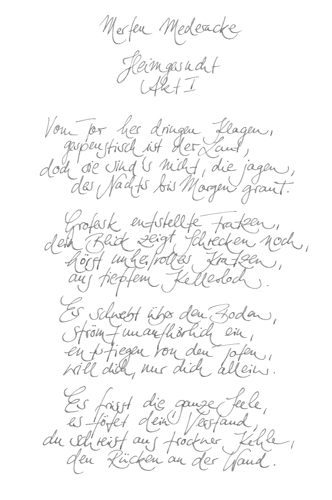 Merten Mederacke
Heimgesucht
Akt I
Vom Tor her dringen Klagen,
gespenstisch ist der Laut,
doch sie sind's nicht, die jagen,
des Nachts bis Morgen graut.
Grotesk entstellte Fratzen,
dein Blick zeigt Schrecken noch,
hörst unheilvolles Kratzen,
aus tiefstem Kellerloch.
Es schwebt über den Boden,
strömt unaufhörlich ein,
entstiegen von den Toten,
will dich, nur dich allein.
Es frisst die ganze Seele,
es tötet dein Verstand,
du schreist aus trockner Kehle,
den Rücken an der Wand.